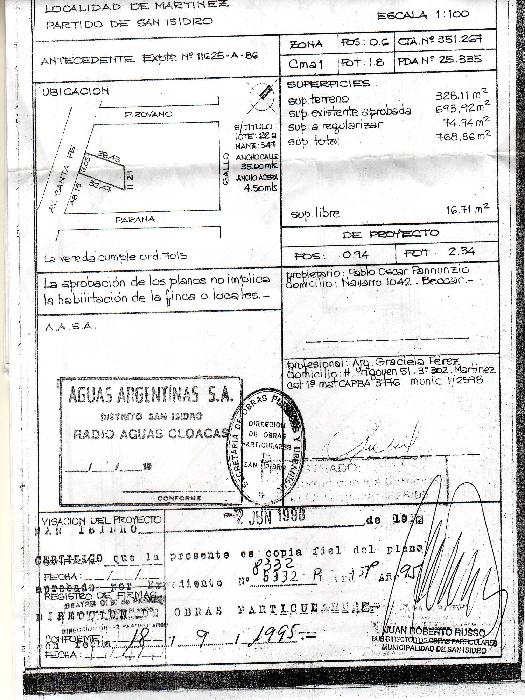 LOCALIDAD DE MARTINEZ
PARTIDO DE SAN ISIDRO
ESCALA 1:100
ANTECEDENTE EXPTE. Nº 11625-A-86
ZONA FOS: 0.6 CTA. Nº 351.267
Cma1 FOT: 1.8 PDA Nº 25.335
UBICACION
PIROVANO
AV. SANTA FE
GALLO
PARANA
S/TITULO
LOTE: 22a
MANZ: 347
ANCHO CALLE
35.00mts
ANCHO ACERA
4.50mts
La vereda cumple ord. 7015
SUPERFICIES
sup. terreno 328.11 m²
sup. existente aprobada 693.92 m²
sup. a regularizar 74.94 m²
sup. total 768.86 m²
sup. libre 16.71 m²
DE PROYECTO
FOS: 0.94 FOT 2.34
La aprobación de los planos no implica
la habilitación de la finca o locales.-
propietario: Pablo Oscar Pannunzio
domicilio: Navarro 1042. Beccar.-
A.A.S.A.
profesional: Arq. Graciela Perez
domicilio: H. Yrigoyen 51. 3º 302. Martinez
cat 1ª mat CAPBA 5796 munic 42598
AGUAS ARGENTINAS S.A.
DISTRITO SAN ISIDRO
RADIO AGUAS CLOACAS
CONFORME
SECRETARIA DE OBRAS PUBLICAS Y URBANISMO
DIRECCION
DE OBRAS
PARTICULARES
SAN ISIDRO
VISACION DEL PROYECTO
SAN ISIDRO 2 JUN 1998 de 19
CERTIFICO que la presente es copia fiel del plano
FECHA:
8332
aprobado por Expediente Nº Año 95
REGISTRO DE FIRMAS
DIRECCION OBRAS PARTICULARES
CONFORME
en fecha 18 / 9 / 1995.-
FECHA:
JUAN ROBERTO RUSSO
SUB DIRECTOR DE OBRAS PARTICULARES
MUNICIPALIDAD DE SAN ISIDRO